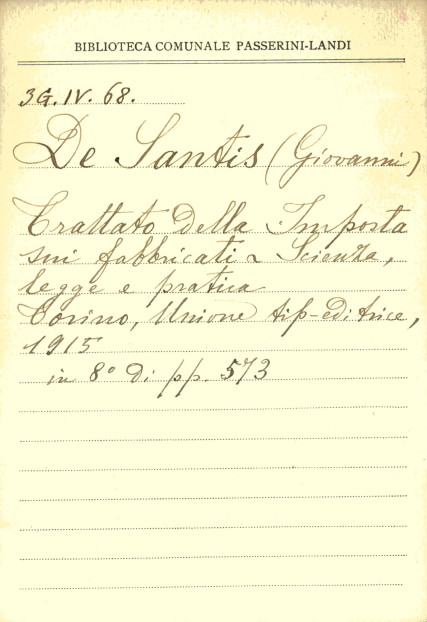 BIBLIOTECA COMUNALE PASSERINI-LANDI
3G. IV. 68.
De Santis (Giovanni)
Trattato della Imposta
sui fabbricati - Scienza,
legge e pratica
Torino, Unione tip-editrice,
1915
in 8° di pp. 573